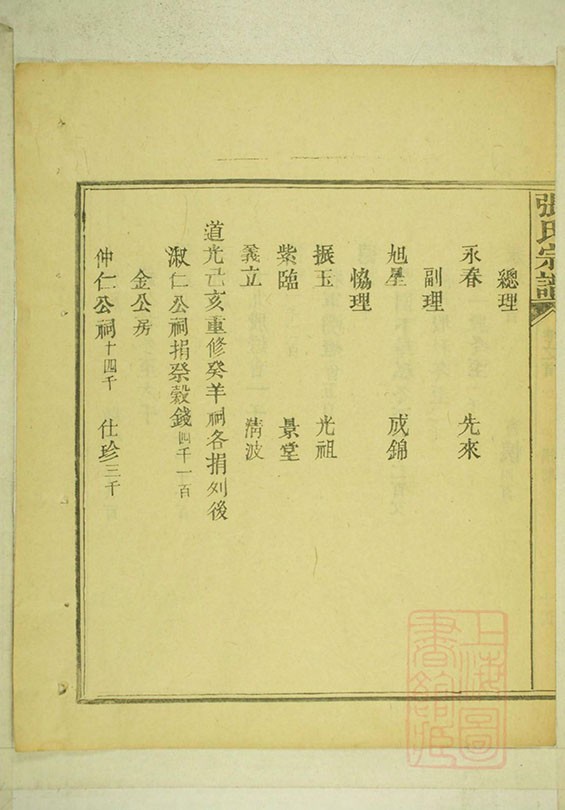 張氏宗譜
總理
永春 先來
副理
旭星 成錦
恊理
振玉 光祖
紫臨 景堂
義立 清波
道光己亥重修癸羊祠各捐列後
淑仁公祠捐祭穀錢四千一百
金公房
仲仁公祠十四千 仕珍三千
上海圖書館藏